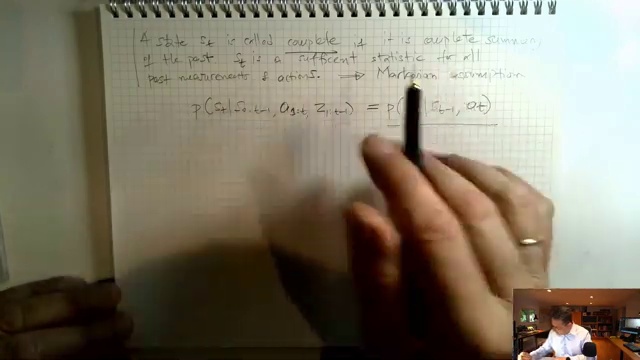 A state st is called complete if it is complete summary
of the past st is a sufficient statistic for all
past measurements & actions. ⇒ Markovian assumption
p(st|s0:t-1, a1:t, z1:t-1) = p( | st-1, at)